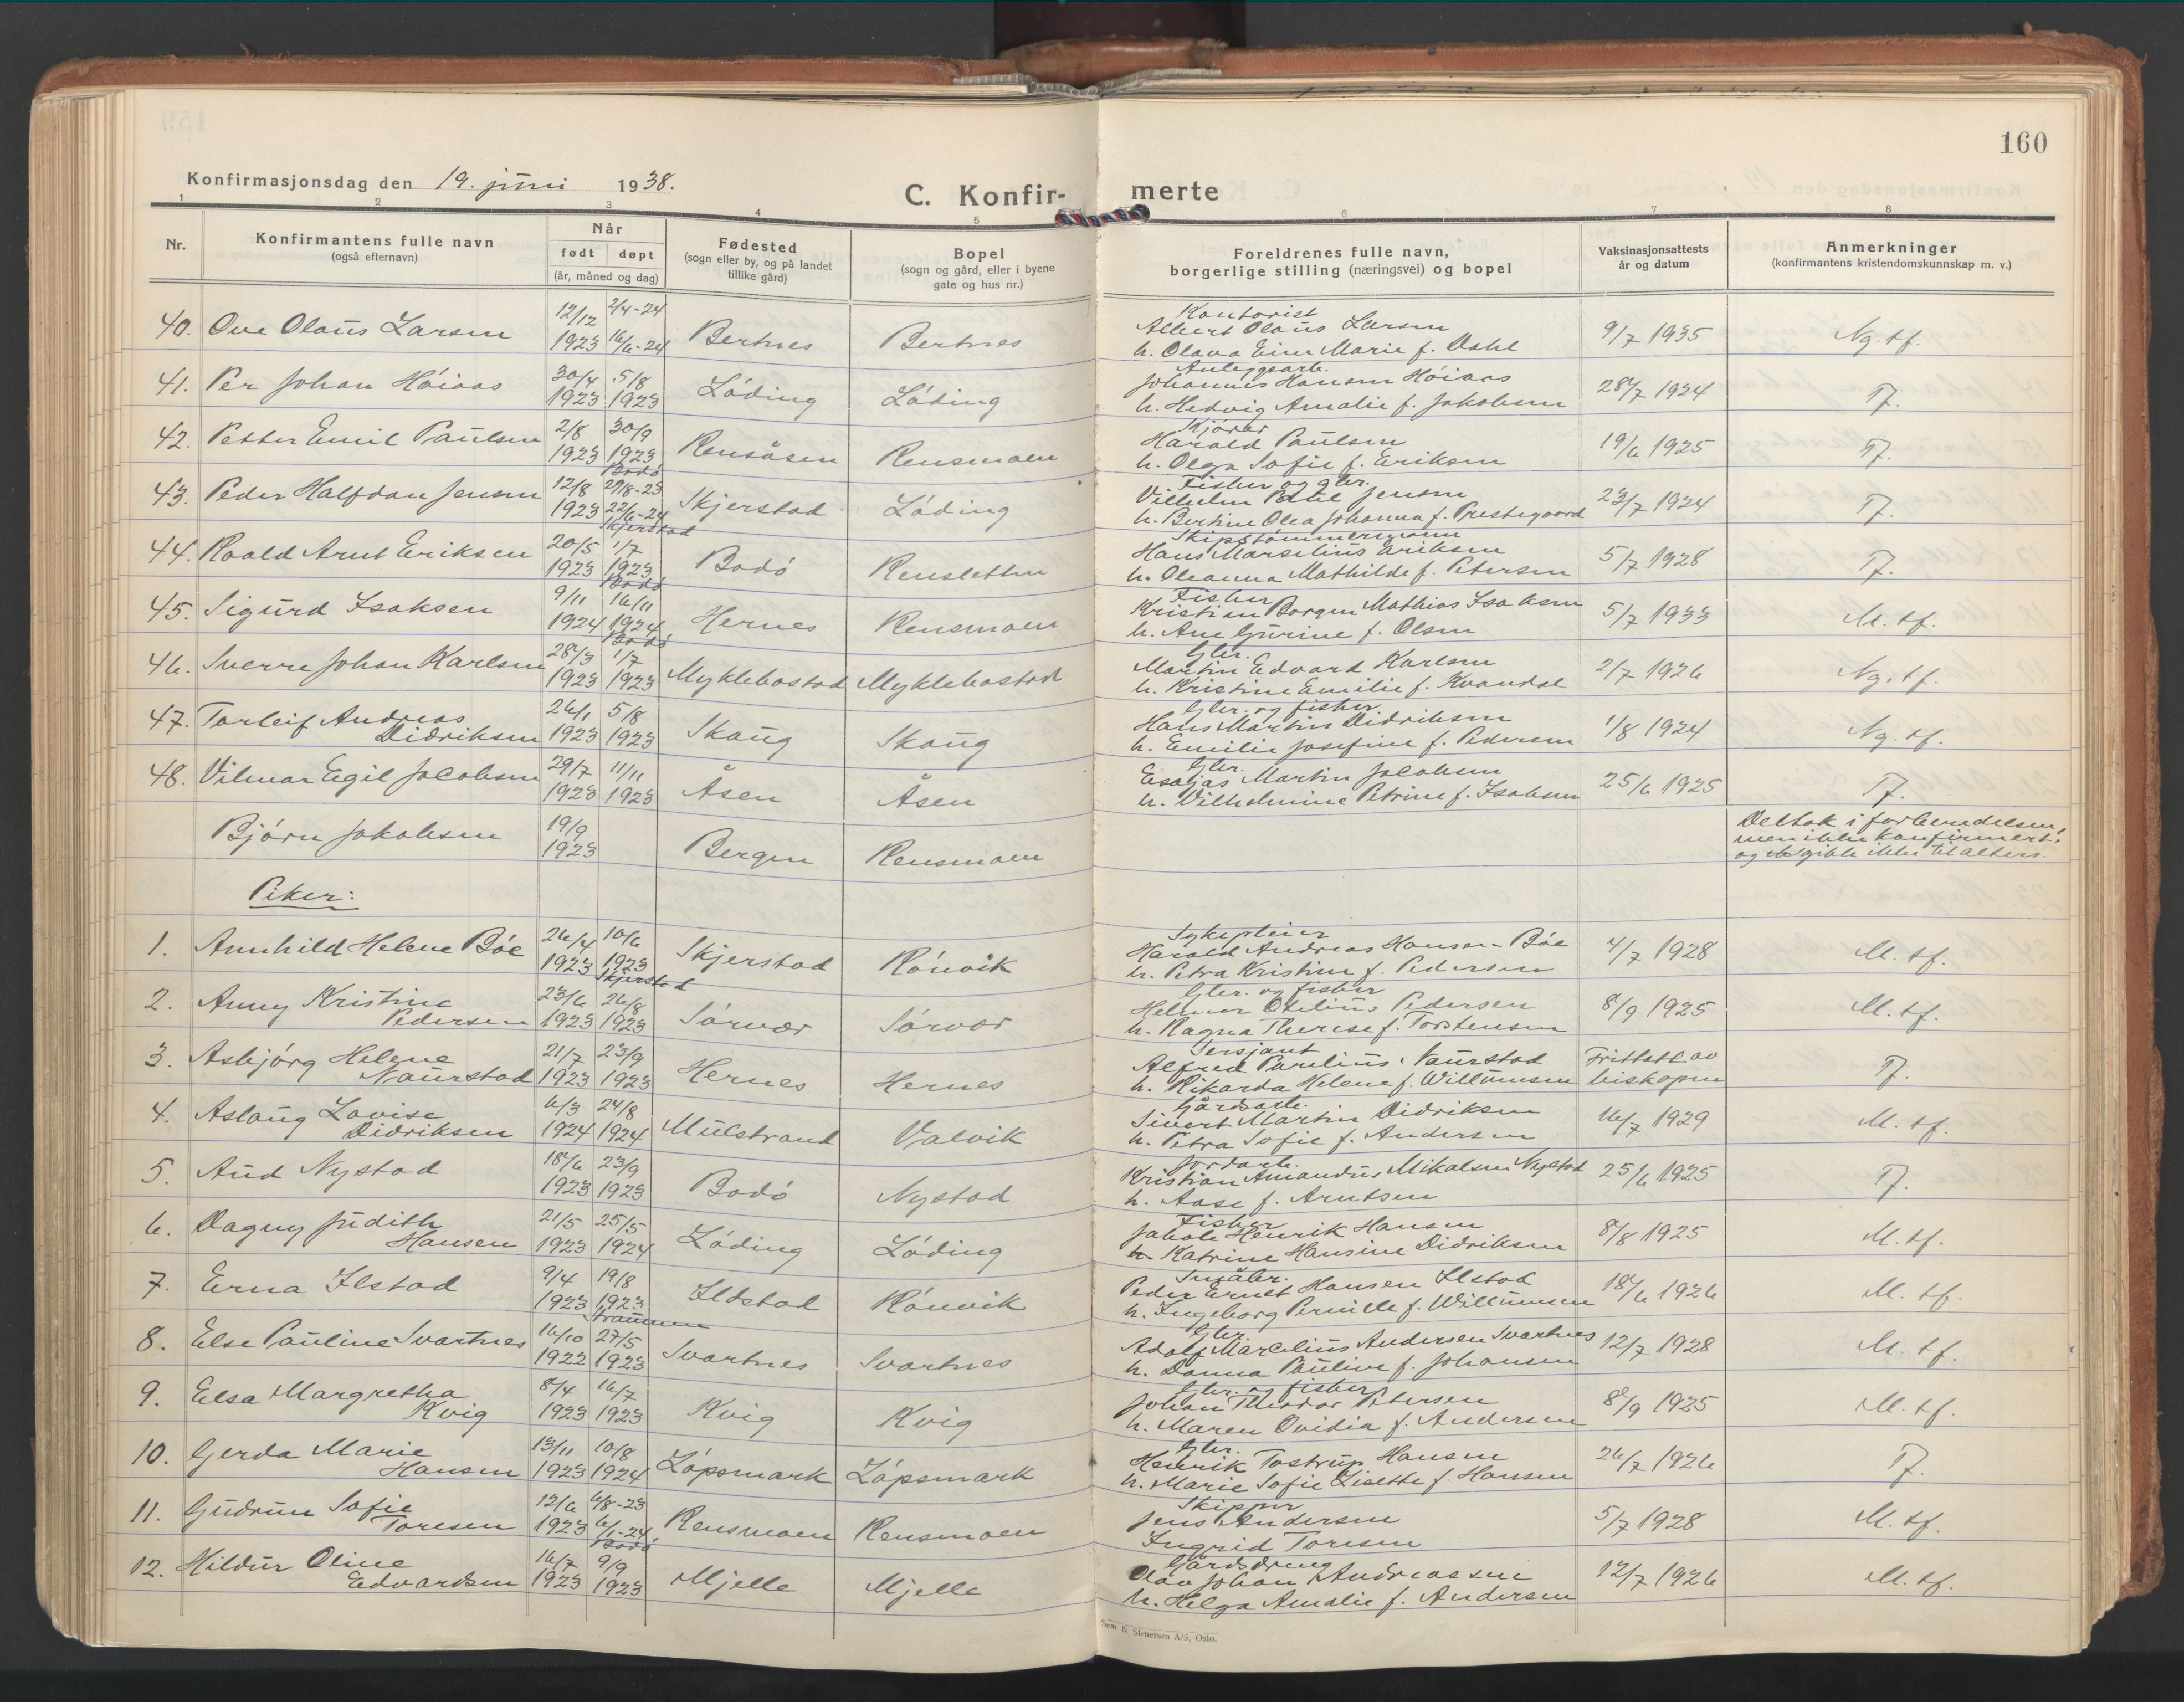 160
Konfirmasjonsdag den 19. juni 1938.
C. Konfir- merte
1 2 3 4 5 6 7 8
Nr.
Konfirmantens fulle navn
(også efternavn)
Når
født døpt
(år, måned og dag)
Fødested
(sogn eller by, og på landet
tillike gård)
Bopel
(sogn og gård, eller i byene
gate og hus nr.)
Foreldrenes fulle navn,
borgerlige stilling (næringsvei) og bopel
Vaksinasjonsattests
år og datum
Anmerkninger
(konfirmantens kristendomskunnskap m. v.)
Kontorist
40. Ove Olaus Larsen 12/12 1923 2/4-24 16/6-24 Bertnes Bertnes Albert Olaus Larsen 9/7 1935 Ng. tf.
h. Olava Eine Marie f. Dahl
Anleggsarb.
41. Per Johan Höiaas 30/4 1923 5/8 1923 Löding Löding Johannes Hansen Höiaas 28/7 1924 T.
h. Hedvig Amalie f. Jakobsen
Kjörer
42. Petter Emil Paulsen 2/8 1923 30/9 1923 Bodö Rensåsen Rensmoen Harald Paulsen 19/6 1925 T.
h. Olga Sofie f. Eriksen
Fisker og gbr.
43. Peder Halfdan Jensen 12/8 1923 29/8-23 22/6-24 Skjerstad Skjerstad Löding Vilhelm Jensen 23/7 1924 T.
h. Bertine Olea Johanna f. Prestegaard
Skipstömmermann
44. Roald Arnt Eriksen 20/5 1923 1/7 1923 Bodö Bodö Rensletten Hans Marselius Eriksen 5/7 1928 T.
h. Oleanna Mathilde f. Petersen
Fisker
45. Sigurd Isaksen 9/11 1924 16/11 1924 Bodö Hernes Rensmoen Kristian Borgen Mathias Isaksen 5/7 1933 M. tf.
h. Ane Gurine f. Olsen
Gbr.
46. Sverre Johan Karlsen 28/3 1923 1/7 1923 Myklebostad Myklebostad Martin Edvard Karlsen 2/7 1926 Ng. tf.
h. Kristine Emilie f. Kvandal
Gbr. og fisker
47. Torleif Andreas 26/1 1923 5/8 1923 Skaug Skaug Hans Martin Didriksen 1/8 1924 Ng. tf.
Didriksen h. Emilie Josefine f. Pedersen
Gbr.
48. Vilmar Egil Jacobsen 29/7 1923 11/11 1923 Åsen Åsen Esaijas Martin Jacobsen 25/6 1925 T.
h. Vilhelmine Petrine f. Isaksen
Björn Jakobsen 19/9 1923 Bergen Rensmoen Deltok i forberedelsen,
men ikke konfirmert,
og gikk ikke til alters.
Piker:
Sykepleier
1. Annhild Helene Böe 26/4 1923 10/6 1923 Skjerstad Skjerstad Rönvik Harald Andreas Hansen Böe 4/7 1928 M. tf.
h. Petra Kristine f. Pedersen
Gbr. og fisker
2. Anny Kristine 23/6 1923 26/8 1923 Sörvær Sörvær Helmer Otelius Pedersen 8/9 1925 M. tf.
Pedersen h. Ragna Therese f. Torstensen
Sersjant
3. Asbjörg Helene 21/7 1923 23/9 1923 Hernes Hernes Alfred Paulius Naurstad Frittatt av T.
Naurstad h. Rikarda Helene f. Willumsen biskopen
Gårdsarb.
4. Aslaug Lovise 6/3 1924 24/8 1924 Mulstrand Valvik Sivert Martin Didriksen 16/7 1929 M. tf.
Didriksen h. Petra Sofie f. Andersen
Jordarb.
5. Aud Nystad 18/6 1923 23/9 1923 Bodö Nystad Kristian Amandus Mikalsen Nystad 25/6 1925 T.
h. Aase f. Arntsen
Fisker
6. Dagny Judith 21/5 1923 25/5 1924 Löding Löding Jakob Henrik Hansen 8/8 1925 M. tf.
Hansen h. Katrine Hansine Didriksen
Småbr.
7. Erna Ilstad 9/4 1923 19/8 1923 Straumen Ildstad Rönvik Peder Ernst Hansen Ilstad 18/6 1926 M. tf.
h. Ingeborg Pernille f. Willumsen
Gbr.
8. Else Pauline Svartnes 16/10 1922 27/5 1923 Svartnes Svartnes Adolf Marcelius Andersen Svartnes 12/7 1928 M. tf.
h. Danna Pauline f. Johansen
Gbr. og fisker
9. Elsa Margretha 8/4 1923 16/7 1923 Kvig Kvig Johan Theodor Petersen 8/9 1925 M. tf.
Kvig h. Maren Ovidia f. Andersen
Gbr.
10. Gerda Marie 13/11 1923 10/8 1924 Löpsmark Löpsmark Henrik Tostrup Hansen 26/7 1926 T.
Hansen h. Marie Sofie Lisette f. Hansen
Skipper
11. Gudrun Sofie 12/6 1923 6/8-23 6/1-24 Bodö Rensmoen Rensmoen Jens Andersen 5/7 1928 M. tf.
Toresen Ingrid Toresen
Gårdsdreng
12. Hildur Oline 16/7 1923 9/9 1923 Mjelle Mjelle Olav Johan Andreassen 12/7 1926 M. tf.
Edvardsen h. Helga Amalie f. Andersen
Sem & Stenersen A/S, Oslo.